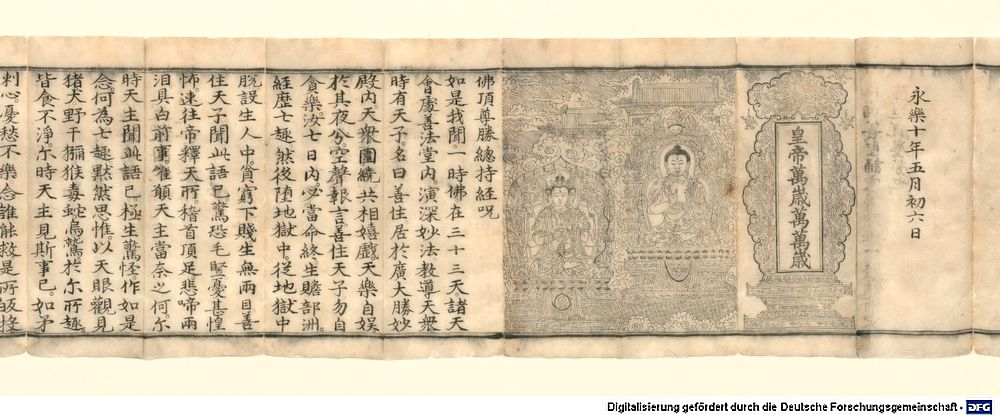 永樂十年五月初六日
皇帝萬歲萬萬歲
佛頂尊勝總持經呪
如是我聞一時佛在三十三天諸天
會處善法堂內演深妙法教導天衆
時有天子名曰善住居於廣大勝妙
殿內天衆圍繞共相嬉戲天樂自娛
於其夜分空聲報言善住天子勿自
貪樂汝七日內必當命終生贍部洲
經歷七趣然後墮地獄中從地獄中
脫設生人中貧窮下賤生無兩目善
住天子聞此語已驚恐毛竪憂甚惶
怖速往帝釋天所稽首頂足悲啼雨
淚具白前事唯願天主當奈之何尒
時天主聞此語已極生驚恠作如是
念何為七趣默然思惟以天眼觀見
猪犬野干獼猴毒蛇烏鷲於尒所趣
皆食不淨尒時天主見斯事已如矛
刺心憂愁不樂念誰能救是所
Digitalisierung gefördert durch die Deutsche Forschungsgemeinschaft - DFG